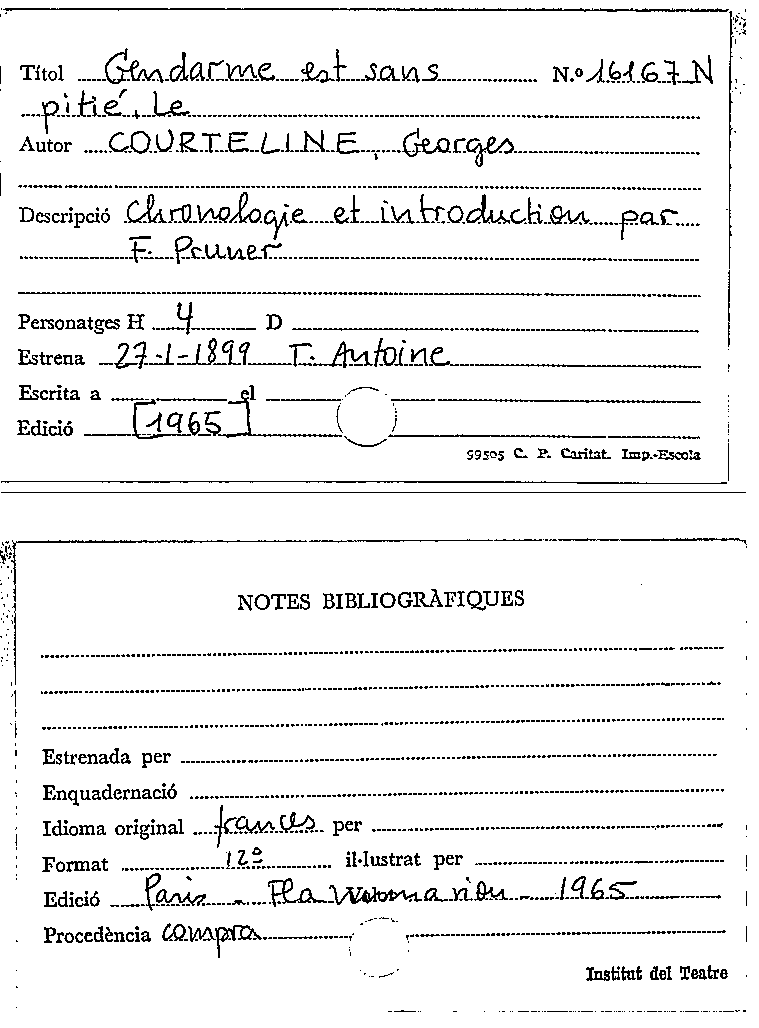 Títol Gendarme est sans N.º 16167 N
pitié, Le
Autor COURTELINE, Georges
Descripció Chronologie et introduction par
F. Pruner
Personatges H 4 D
Estrena 27-1-1899 T. Antoine
Escrita a el
Edició [1965]
99505 C. P. Caritat. Imp.-Escola
NOTES BIBLIOGRÀFIQUES
Estrenada per
Enquadernació
Idioma original frances per
Format 12º il·lustrat per
Edició Paris - Flammarion - 1965
Procedència compra
Institut del Teatre